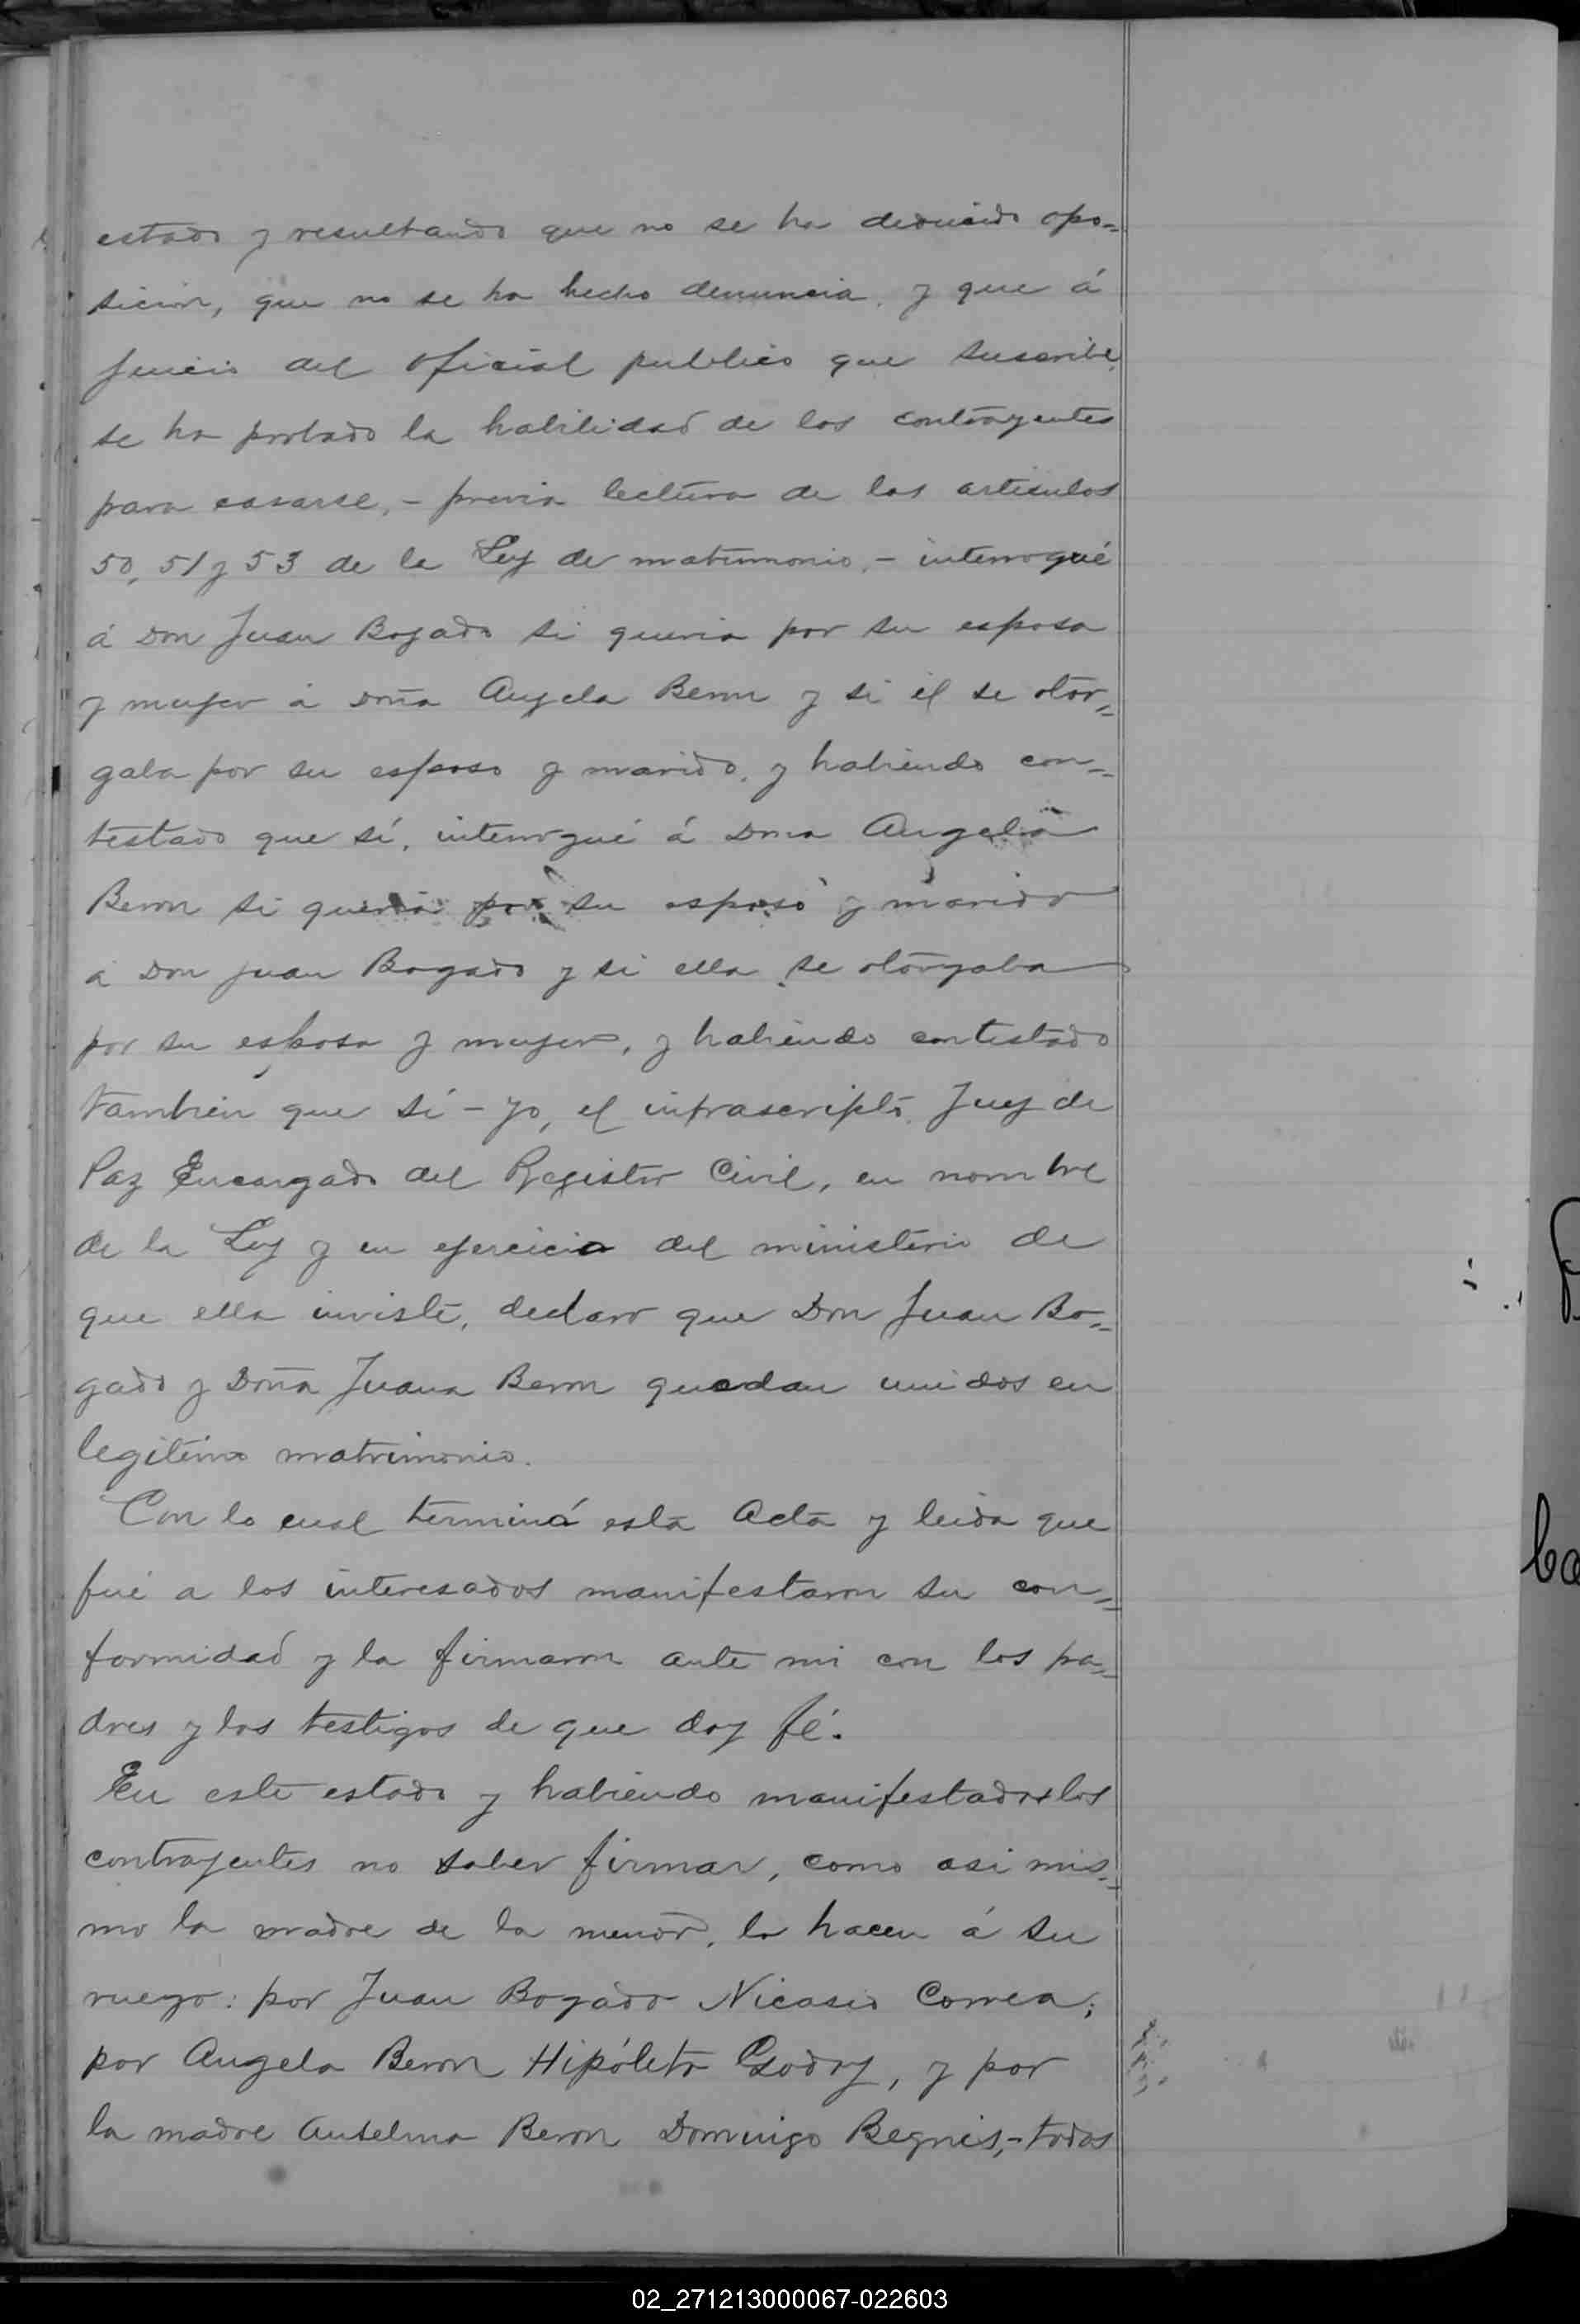 estado y resultando que no se ha deducido opo=
sicion, que no se ha hecho denuncia, y que á
juicio del oficial publico que suscribe,
se ha probado la habilidad de los contrayentes
para casarse, - previa lectura de los articulos
50, 51 y 53 de la Ley de matrimonio, - interrogué
á Don Juan Bogado si queria por su esposa
y mujer á Doña Angela Beron y si él se otor=
gaba por su esposo y marido, y habiendo con=
testado que sí, interrogué á Doña Angela
Beron si queria por su esposo y marido
á Don Juan Bogado y si ella se otorgaba
por su esposa y mujer, y habiendo contestado
tambien que sí - yo, el infrascripto Juez de
Paz Encargado del Registro Civil, en nombre
de la Ley y en ejercicio del ministerio de
que ella inviste, declaro que Don Juan Bo=
gado y Doña Juana Beron quedan unidos en
legitimo matrimonio.
Con lo cual terminó esta Acta y leida que
fué a los interesados manifestaron su con=
formidad y la firmaron ante mi con los pa=
dres y los testigos de que doy fé.
En este estado y habiendo manifestado los
contrayentes no saber firmar, como asi mis=
mo la madre de la menor, lo hacen á su
ruego: por Juan Bogado Nicasio Correa;
por Angela Beron Hipólito Godoy, y por
la madre Anselma Beron Domingo Begnis, - todos
02_271213000067-022603